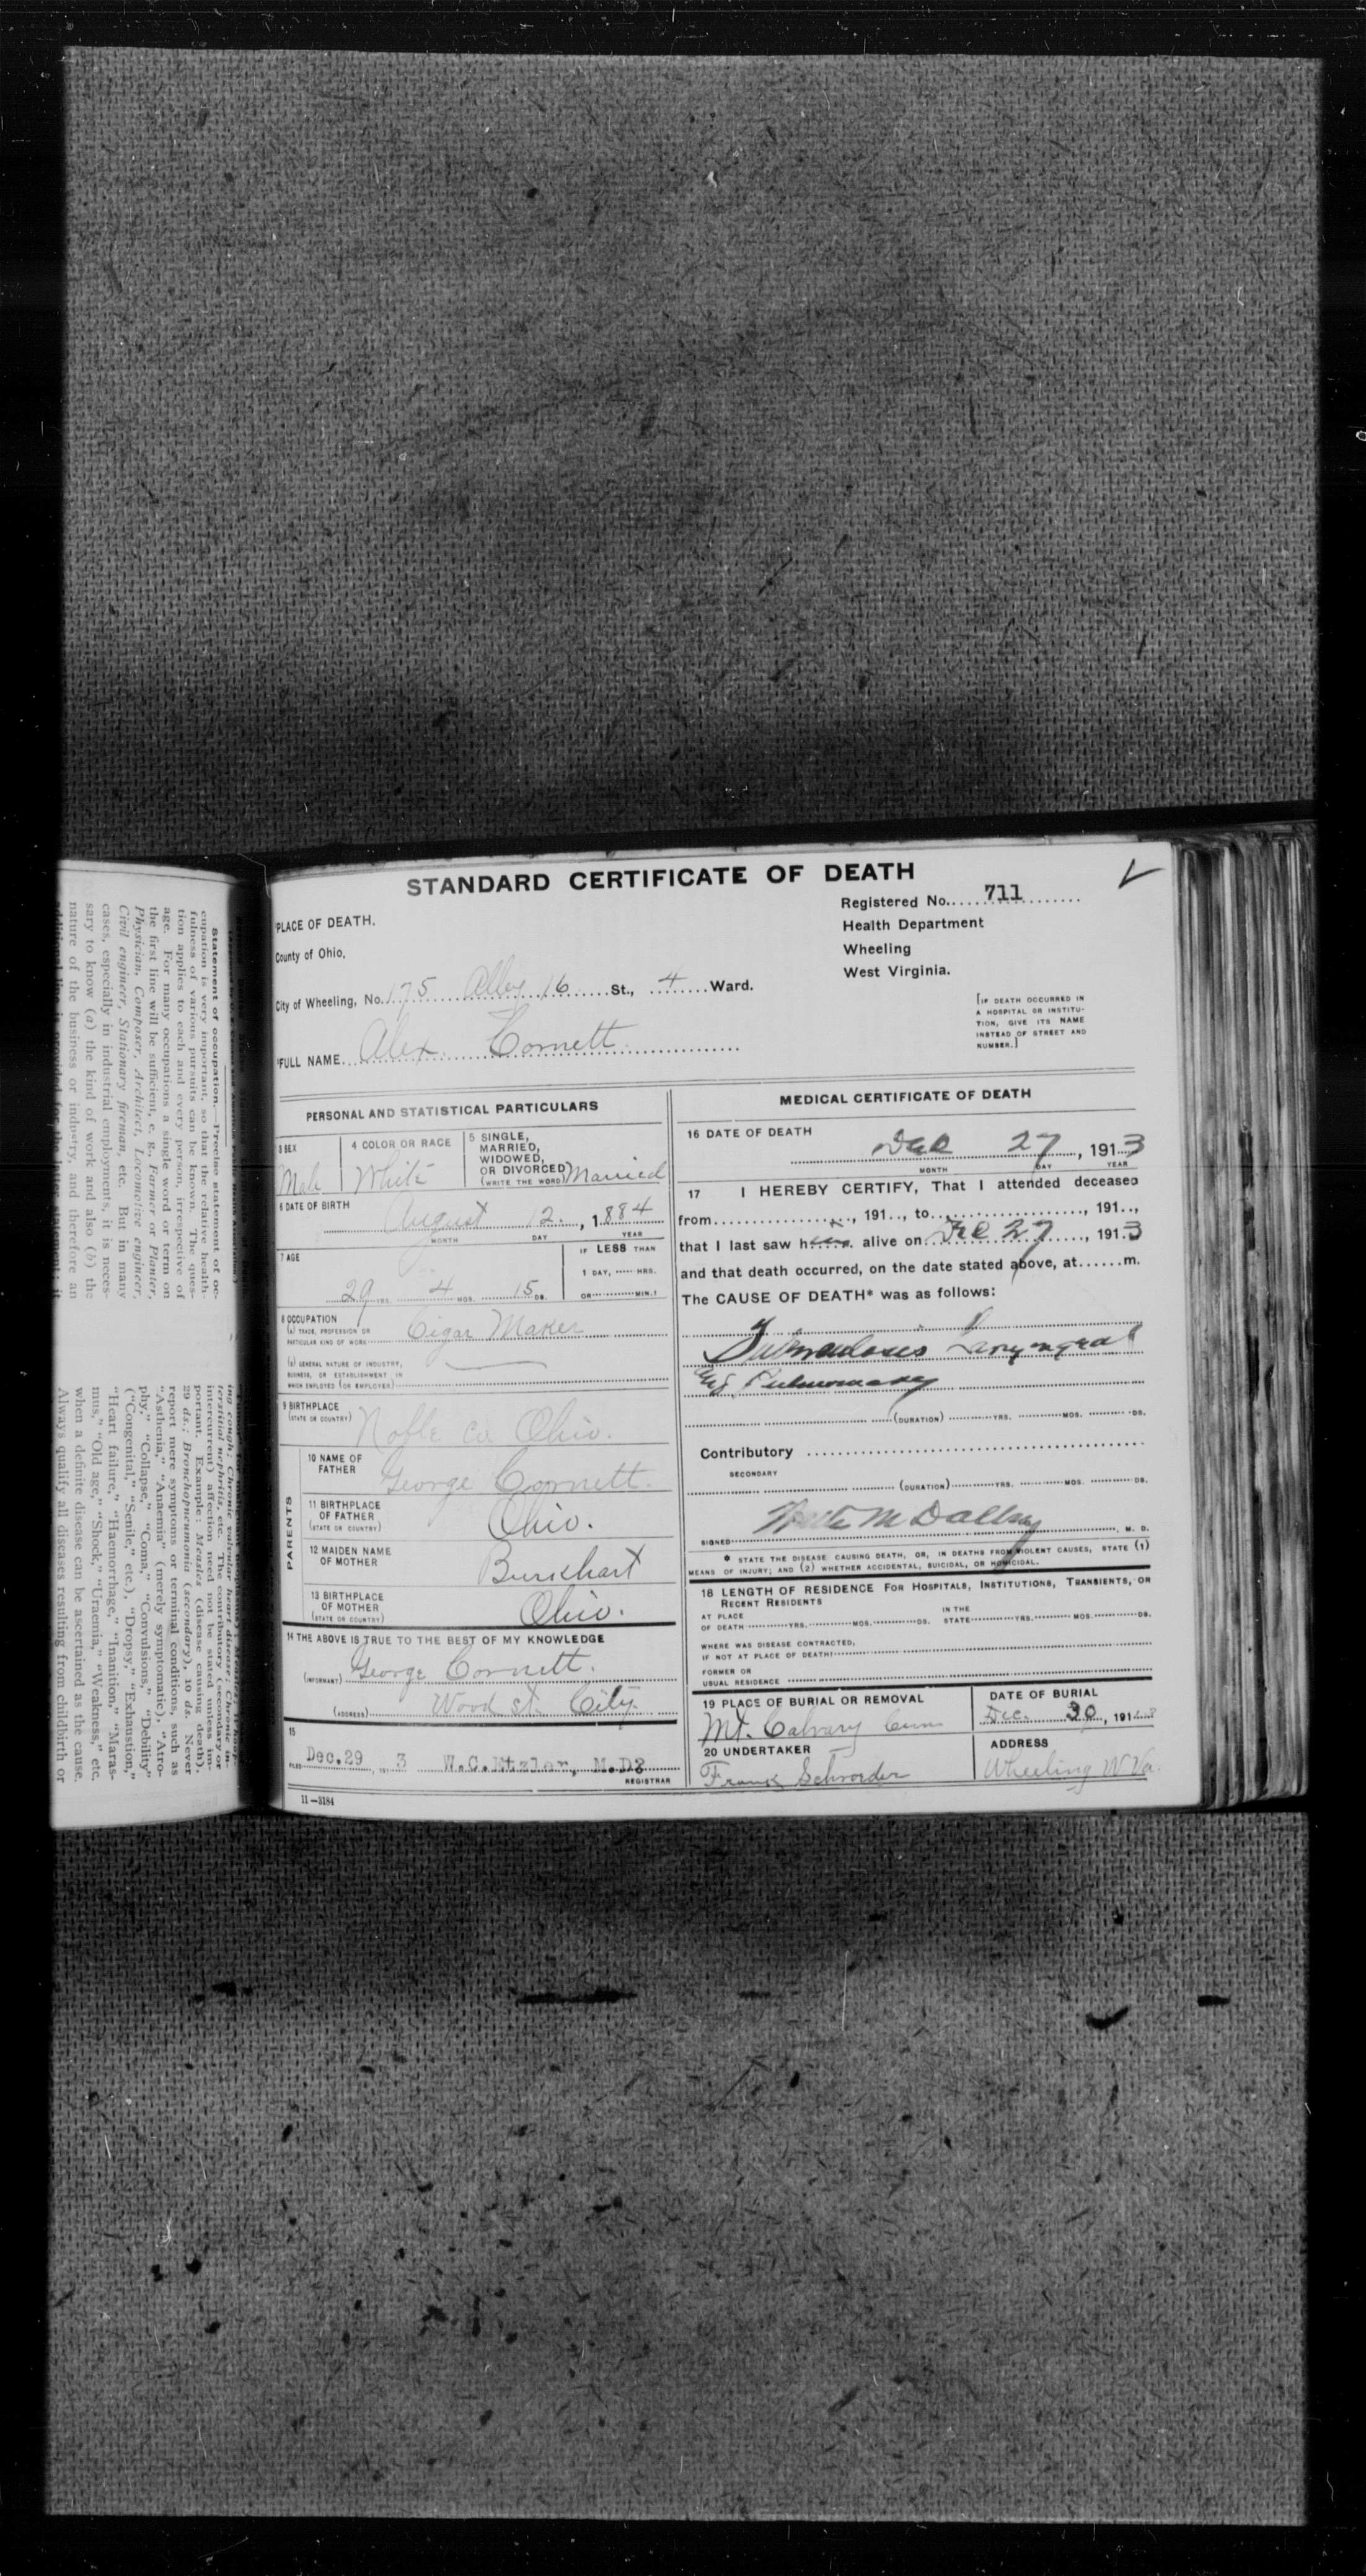 Statement of occupation.—Precise statement of oc-
cupation is very important, so that the relative health-
fulness of various pursuits can be known. The ques-
tion applies to each and every person, irrespective of
age. For many occupations a single word or term on
the first line will be sufficient, e. g., Farmer or Planter,
Physician, Composer, Architect, Locomotive engineer,
Civil engineer, Stationary fireman, etc. But in many
cases, especially in industrial employments, it is neces-
sary to know (a) the kind of work and also (b) the
nature of the business or industry, and therefore an
additional line is provided for the latter statement; it
ing cough; Chronic valvular heart disease; Chronic in-
terstitial nephritis, etc. The contributory (secondary or
intercurrent) affection need not be stated unless im-
portant. Example: Measles (disease causing death),
29 ds.; Bronchopneumonia (secondary), 10 ds. Never
report mere symptoms or terminal conditions, such as
"Asthenia," "Anaemia" (merely symptomatic), "Atro-
phy," "Collapse," "Coma," "Convulsions," "Debility"
("Congenital," "Senile," etc.), "Dropsy," "Exhaustion,"
"Heart failure," "Haemorrhage," "Inanition," "Maras-
mus," "Old age," "Shock," "Uraemia," "Weakness," etc.
when a definite disease can be ascertained as the cause.
Always qualify all diseases resulting from childbirth or
STANDARD CERTIFICATE OF DEATH
Registered No. 711
Health Department
Wheeling
West Virginia.
PLACE OF DEATH.
County of Ohio,
City of Wheeling, No. 175 Alley 16 St., 4 Ward.
[IF DEATH OCCURRED IN
A HOSPITAL OR INSTITU-
TION, GIVE ITS NAME
INSTEAD OF STREET AND
NUMBER.]
FULL NAME Alex Cornett
PERSONAL AND STATISTICAL PARTICULARS
3 SEX Male
4 COLOR OR RACE White
5 SINGLE,
MARRIED,
WIDOWED,
OR DIVORCED
(WRITE THE WORD) Married
6 DATE OF BIRTH
August 12, 1884
MONTH DAY YEAR
7 AGE
29 YRS. 4 MOS. 15 DS.
IF LESS THAN
1 DAY, HRS.
OR MIN.?
8 OCCUPATION
(a) TRADE, PROFESSION OR
PARTICULAR KIND OF WORK Cigar Maker
(b) GENERAL NATURE OF INDUSTRY,
BUSINESS, OR ESTABLISHMENT IN
WHICH EMPLOYED (OR EMPLOYER)
9 BIRTHPLACE
(STATE OR COUNTRY) Noble Co Ohio.
PARENTS
10 NAME OF
FATHER George Cornett
11 BIRTHPLACE
OF FATHER
(STATE OR COUNTRY) Ohio.
12 MAIDEN NAME
OF MOTHER Burkhart
13 BIRTHPLACE
OF MOTHER
(STATE OR COUNTRY) Ohio.
14 THE ABOVE IS TRUE TO THE BEST OF MY KNOWLEDGE
(INFORMANT) George Cornett.
(ADDRESS) Wood st. City
15
FILED Dec.29, 191 3 W.C.Etzler, M.D?
REGISTRAR
11—3184
MEDICAL CERTIFICATE OF DEATH
16 DATE OF DEATH
Dec 27, 1913
MONTH DAY YEAR
17 I HEREBY CERTIFY, That I attended deceased
from , 191 , to , 191 ,
that I last saw h alive on Dec 27, 1913
and that death occurred, on the date stated above, at m.
The CAUSE OF DEATH* was as follows:
Tuberculosis Laryngeal
Pulmonary
(DURATION) YRS. MOS. DS.
Contributory
SECONDARY
(DURATION) YRS. MOS. DS.
SIGNED , M. D.
* STATE THE DISEASE CAUSING DEATH, OR, IN DEATHS FROM VIOLENT CAUSES, STATE (1)
MEANS OF INJURY; AND (2) WHETHER ACCIDENTAL, SUICIDAL, OR HOMICIDAL.
18 LENGTH OF RESIDENCE FOR HOSPITALS, INSTITUTIONS, TRANSIENTS, OR
RECENT RESIDENTS
AT PLACE OF DEATH YRS. MOS. DS. IN THE STATE YRS. MOS. DS.
WHERE WAS DISEASE CONTRACTED,
IF NOT AT PLACE OF DEATH?
FORMER OR
USUAL RESIDENCE
19 PLACE OF BURIAL OR REMOVAL
Mt. Calvary Cem
DATE OF BURIAL
Dec. 30, 191
20 UNDERTAKER
Frank Schroeder
ADDRESS
Wheeling W.Va.